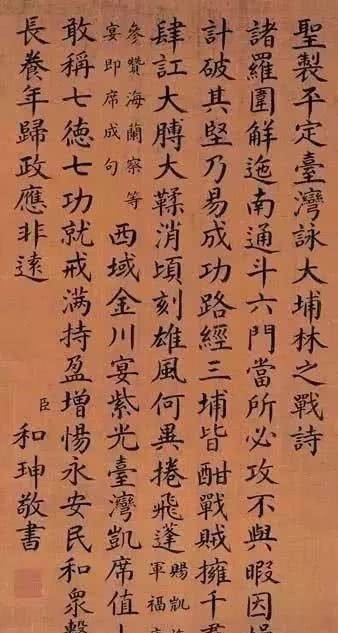 聖製平定臺灣詠大埔林之戰詩
諸羅圍解迤南通斗六門當所必攻不與暇因
計破其堅乃易成功路經三埔皆酣戰賊擁千
肆訌大膊大鞣消頃刻雄風何異捲飛蓬賜凱
軍福
參贊海蘭察等
宴即席成句
西域金川宴紫光臺灣凱席值
敢稱七德七功就戒满持盈增惕永安民和衆
長養年歸政應非遠
臣
和珅敬書